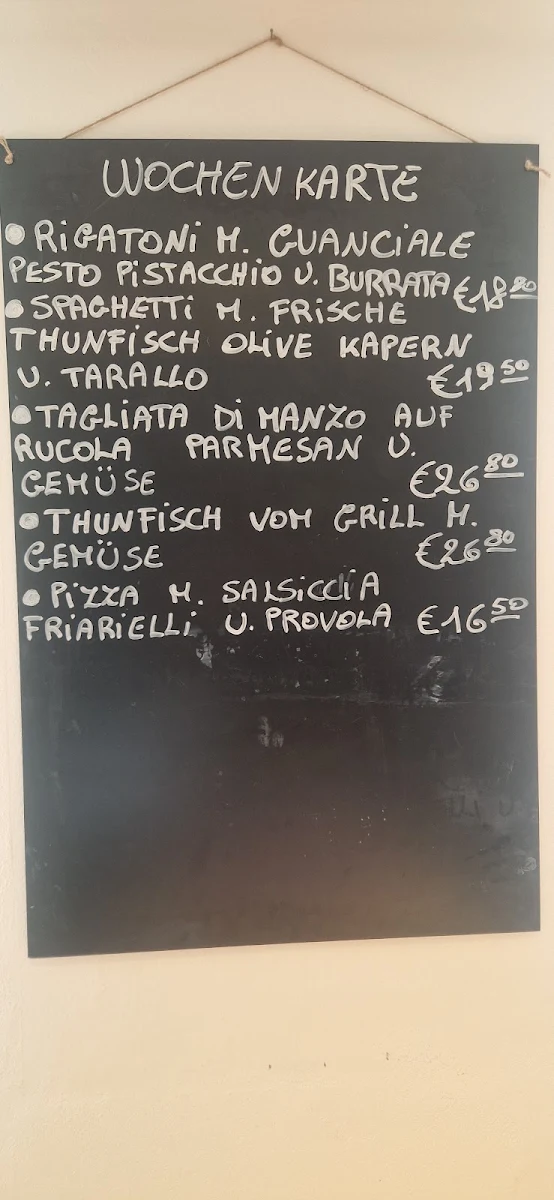 WOCHEN KARTE
• RIGATONI M. GUANCIALE
PESTO PISTACCHIO U. BURRATA €18 80
• SPAGHETTI M. FRISCHE
THUNFISCH OLIVE KAPERN
U. TARALLO €19 50
• TAGLIATA DI MANZO AUF
RUCOLA PARMESAN U.
GEMÜSE €26 80
• THUNFISCH VOM GRILL M.
GEMÜSE €26 80
• PIZZA M. SALSICCIA
FRIARIELLI U. PROVOLA €16 50